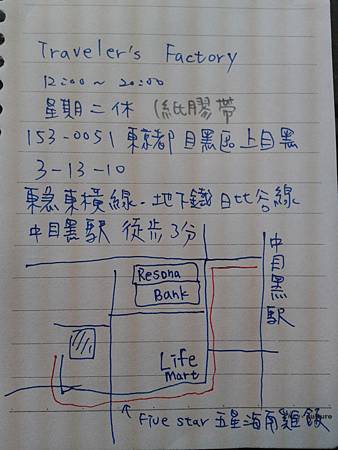 Traveler's Factory
12:00 ~ 20:00
星期二休 (紙膠帶
153-0051 東京都目黑區上目黑
3-13-10
東急東橫線．地下鐵日比谷線
中目黑駅 徒步3分
Resona
Bank
中目黑駅
Life
mart
Five star 五星海南雞飯